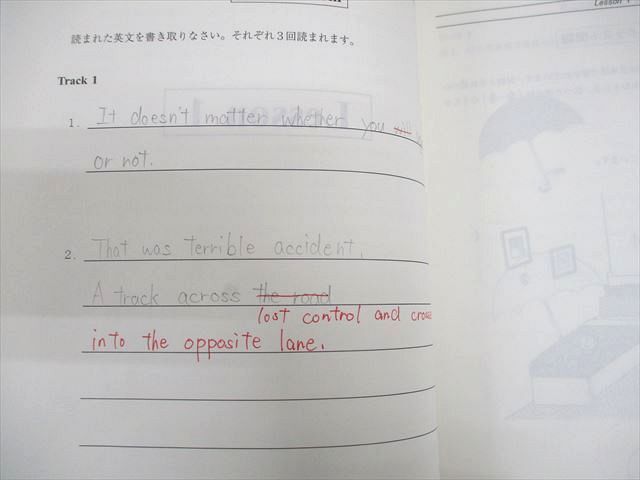 Lesson 1
読まれた英文を書き取りなさい。それぞれ3回読まれます。
Track 1
1. It doesn't matter whether you will
or not.
2. That was terrible accident.
A track across the road
lost control and cross
into the opposite lane.